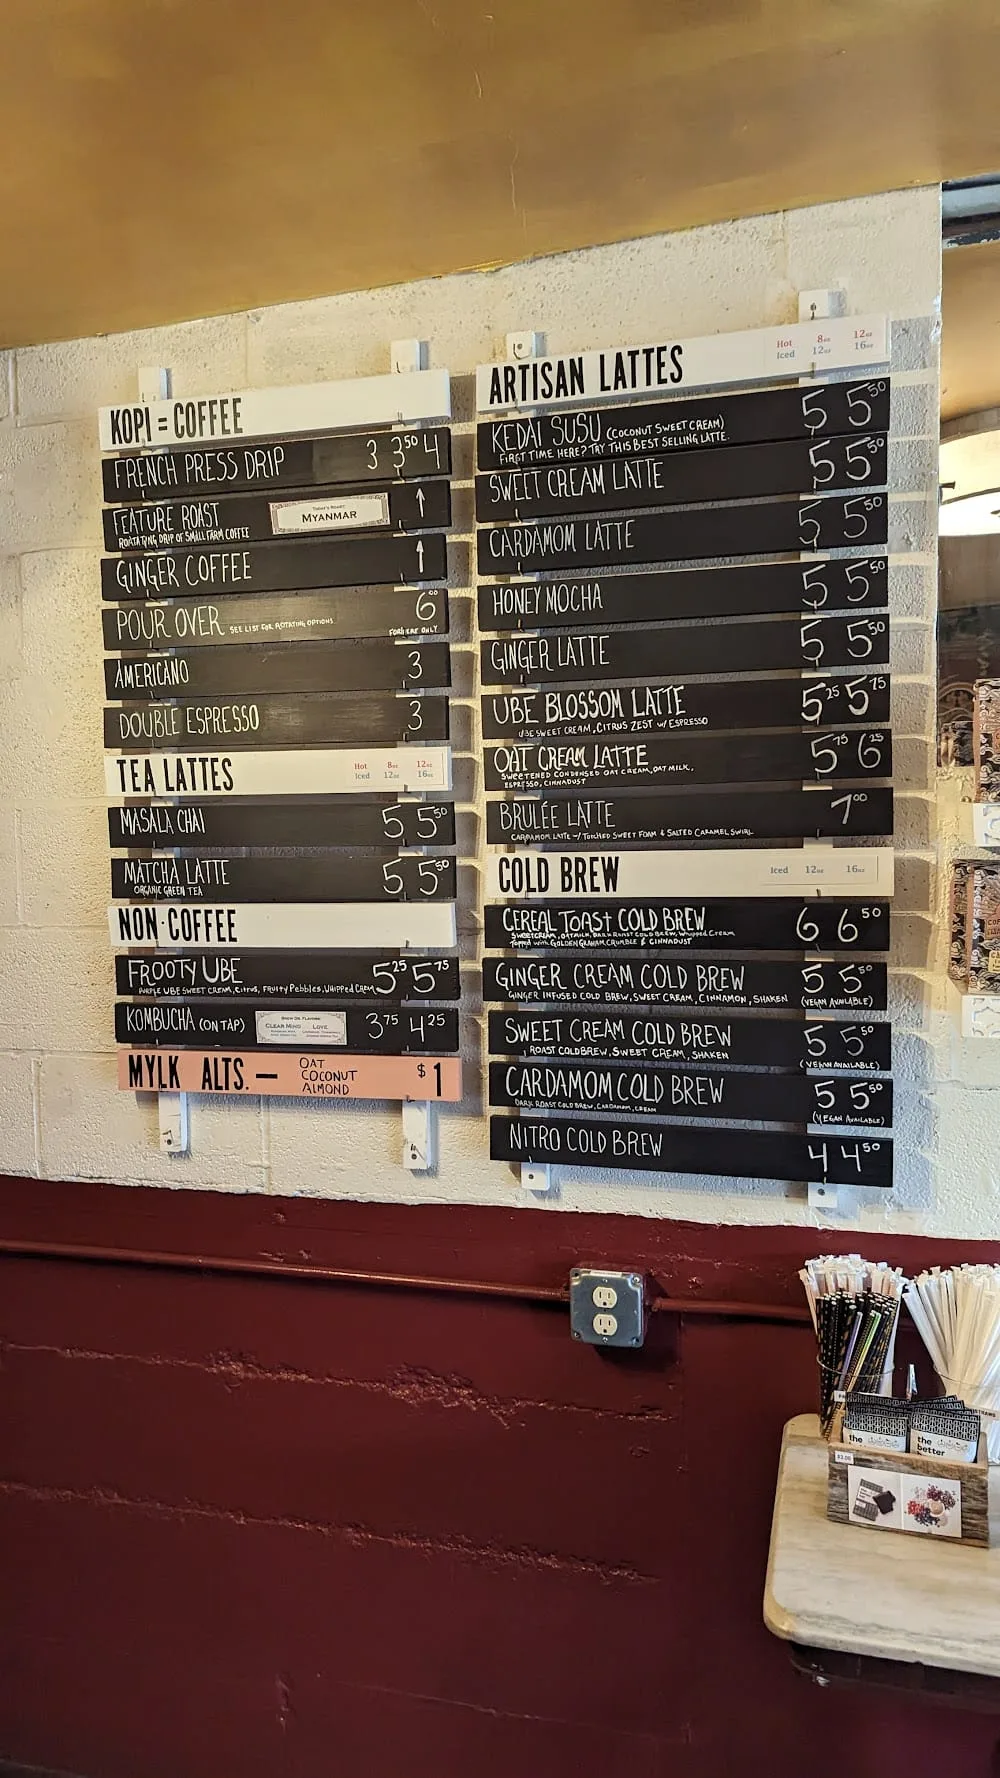 KOPI = COFFEE
FRENCH PRESS DRIP 3 3⁵⁰ 4
FEATURE ROAST
ROATATING DRIP OF SMALL FARM COFFEE
TODAY'S ROAST:
MYANMAR
↑
GINGER COFFEE ↑
POUR OVER SEE LIST FOR ROTATING OPTIONS 6⁰⁰
FOR HERE ONLY
AMERICANO 3
DOUBLE ESPRESSO 3
TEA LATTES
Hot 8oz 12oz
Iced 12oz 16oz
MASALA CHAI 5 5⁵⁰
MATCHA LATTE 5 5⁵⁰
ORGANIC GREEN TEA
NON-COFFEE
FROOTY UBE 5²⁵ 5⁷⁵
PURPLE UBE SWEET CREAM, CITRUS, FRUITY PEBBLES, WHIPPED CREAM
KOMBUCHA (ON TAP) 3⁷⁵ 4²⁵
CLEAR MIND LOVE
MYLK ALTS. — $1
OAT
COCONUT
ALMOND
ARTISAN LATTES
Hot 8oz 12oz
Iced 12oz 16oz
KEDAI SUSU (COCONUT SWEET CREAM) 5 5⁵⁰
FIRST TIME HERE? TRY THIS BEST SELLING LATTE.
SWEET CREAM LATTE 5 5⁵⁰
CARDAMOM LATTE 5 5⁵⁰
HONEY MOCHA 5 5⁵⁰
GINGER LATTE 5 5⁵⁰
UBE BLOSSOM LATTE 5²⁵ 5⁷⁵
UBE SWEET CREAM, CITRUS ZEST W/ ESPRESSO
OAT CREAM LATTE 5⁷⁵ 6²⁵
SWEETENED CONDENSED OAT CREAM, OAT MILK,
ESPRESSO, CINNADUST
BRULÉE LATTE 7⁰⁰
CARDAMOM LATTE W/ TORCHED SWEET FOAM & SALTED CARAMEL SWIRL
COLD BREW
Iced 12oz 16oz
CEREAL TOAST COLD BREW 6 6⁵⁰
SWEETCREAM, OATMILK, DARK ROAST COLD BREW, WHIPPED CREAM
TOPPED WITH GOLDEN GRAHAM CRUMBLE & CINNADUST
GINGER CREAM COLD BREW 5 5⁵⁰
GINGER INFUSED COLD BREW, SWEET CREAM, CINNAMON, SHAKEN (VEGAN AVAILABLE)
SWEET CREAM COLD BREW 5 5⁵⁰
ROAST COLDBREW, SWEET CREAM, SHAKEN (VEGAN AVAILABLE)
CARDAMOM COLD BREW 5 5⁵⁰
DARK ROAST COLD BREW, CARDAMOM, CREAM (VEGAN AVAILABLE)
NITRO COLD BREW 4 4⁵⁰
the
the
better